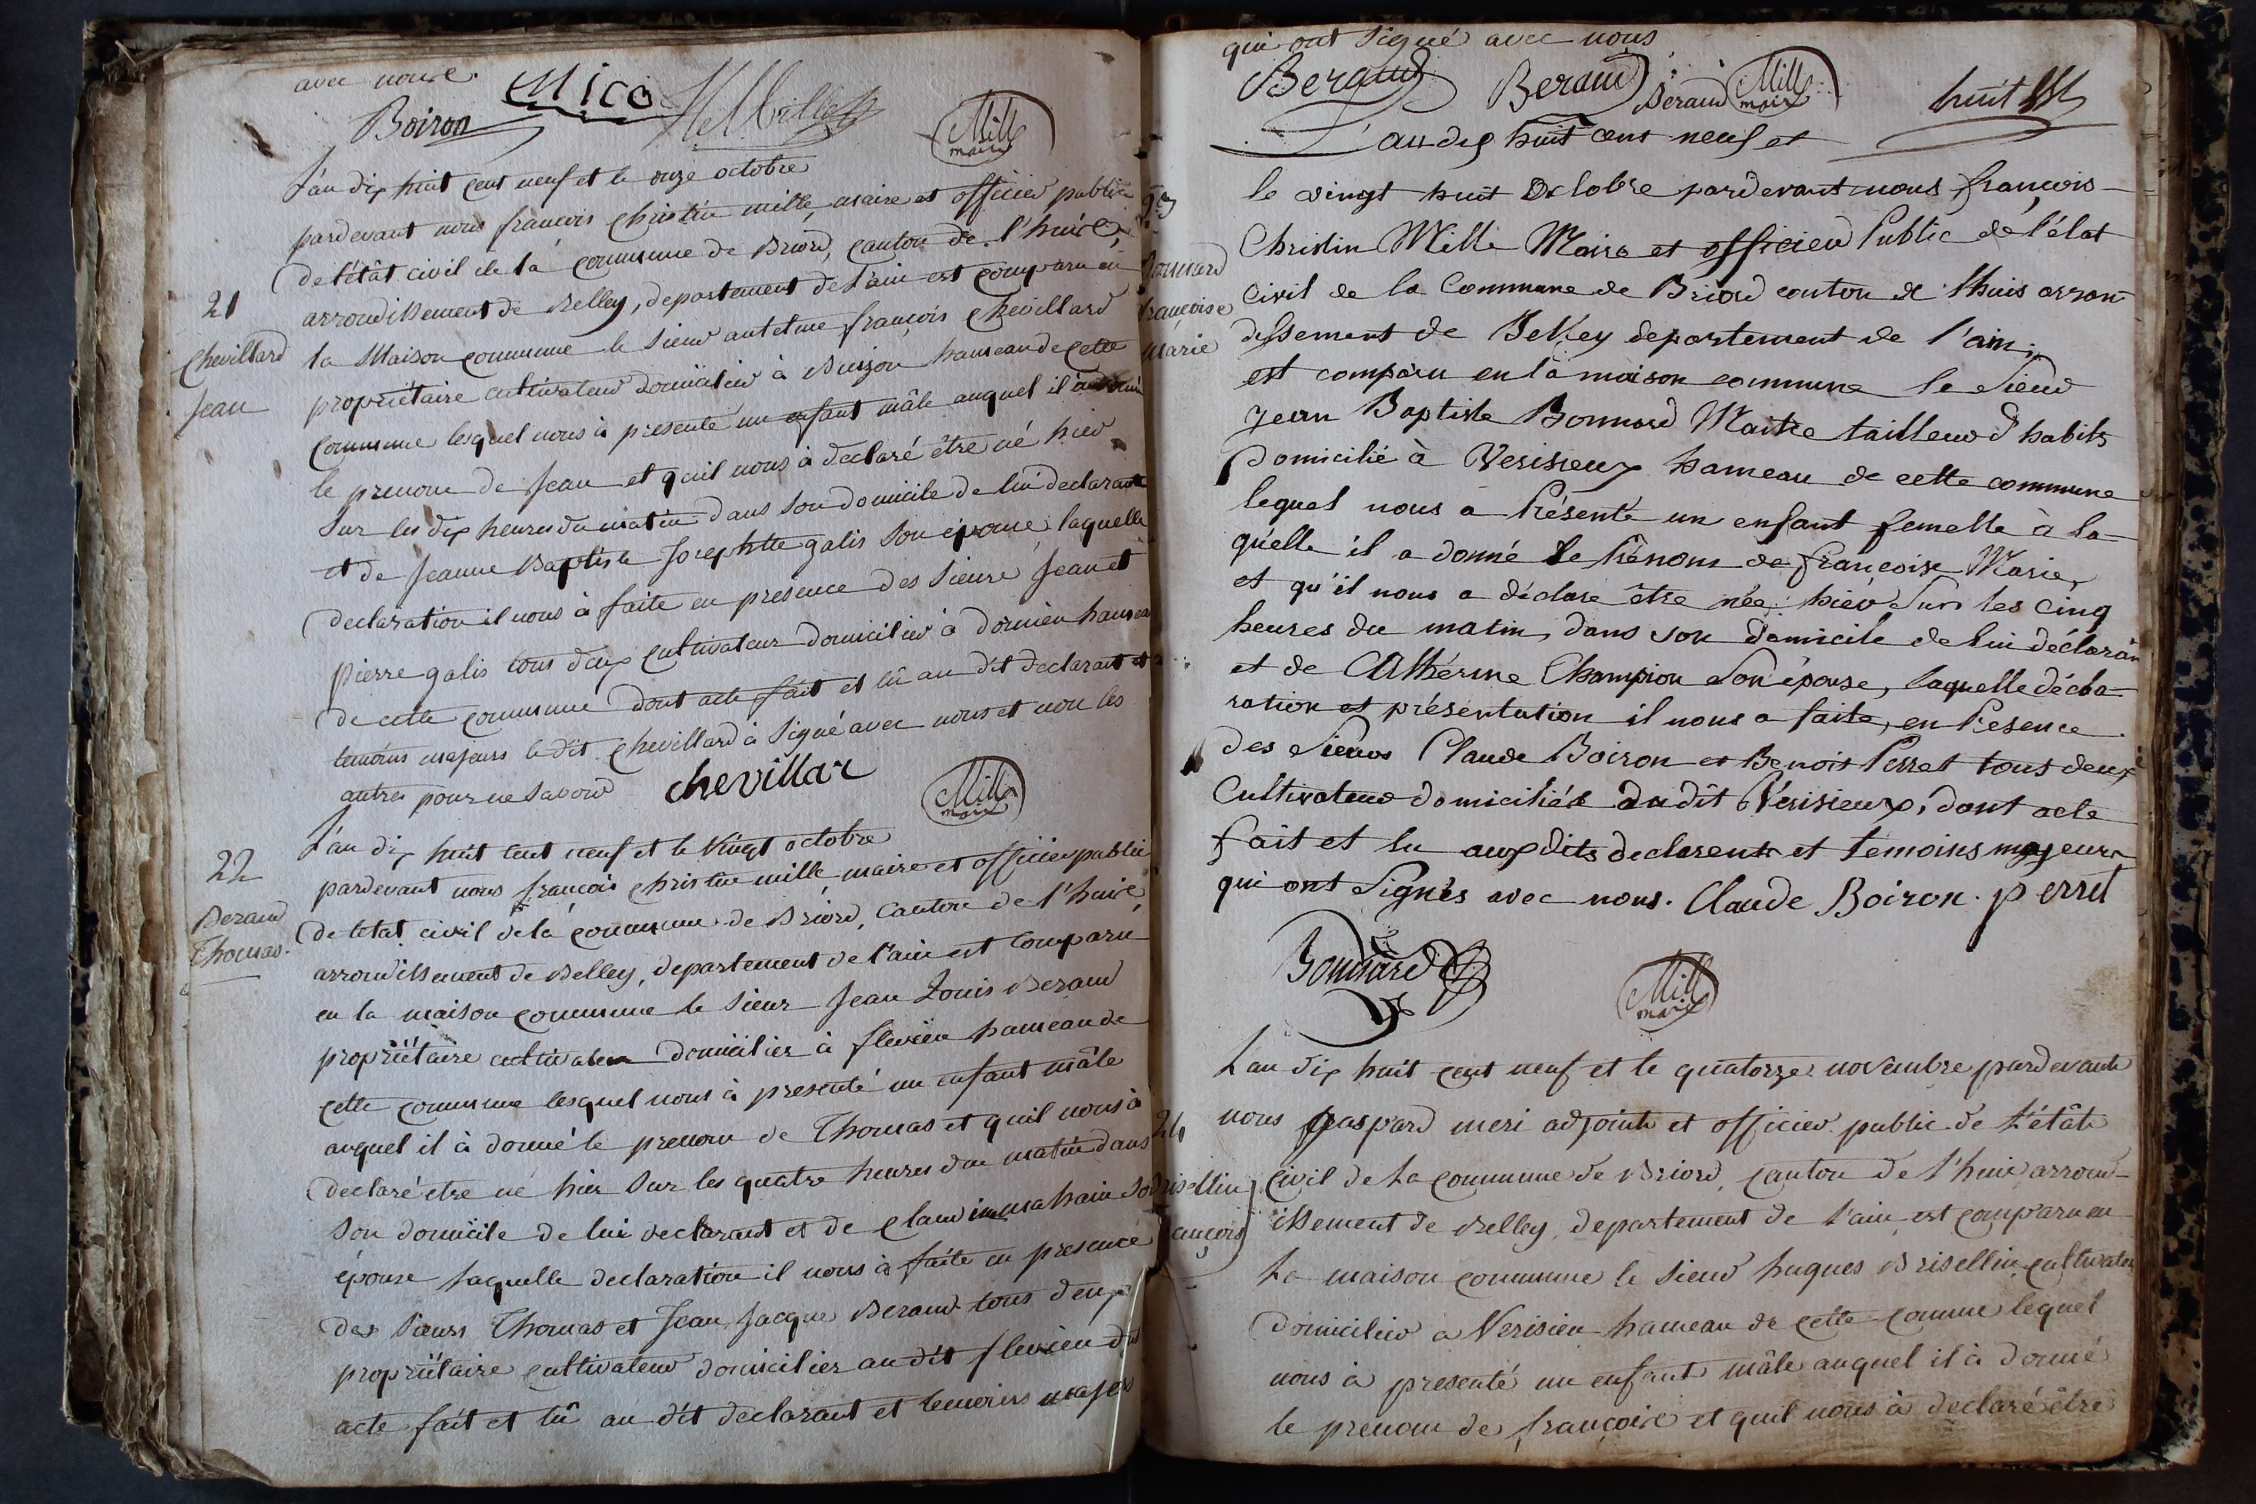 avec nous.
Boiron Mico
Mille
maire
L'an dix huit cent neuf et le onze octobre
pardevant nous francois christin mille, maire et officier public
de l'êtât civil de la commune de Briord, canton de l'huis,
arrondissement de Belley, departement de l'ain est comparu en
21
Chevillard
Jean
la Maison commune le sieur antelme françois chevillard
propriétaire cultivateur domicilier à Buizon hameau de cette
commune lesquel nous à presenté un enfant mâle auquel il à donné
le prenom de Jean et quil nous à declaré être né hier
sur les dix heures du matin dans son domicile de lui declarant
et de Jeanne Baptiste Josephtte galis son épouse, laquelle
declaration il nous à faite en presence des sieurs Jean et
pierre galis tous deux cultivateur domicilier à dornieu hameau
de cette commune dont acte fait et lû au dit declarant et
temoins majeurs le dit chevillard à signé avec nous et non les
autres pour ne savoir chevillar
Mille
maire
L'an dix huit cent neuf et le vingt octobre
22
Beraud
Thomas.
pardevant nous françois christin mille maire et officier public
de l'etat civil de la commune de Briord, canton de l'huis,
arrondissement de Belley, departement de l'ain est comparu
en la maison commune le sieur Jean Louis Beraud
propriétaire cultivateur domicilier à flevieu hameau de
cette commune lesquel nous à presenté un enfant mâle
auquel il à donné le prenom de Thomas et quil nous à
declaré etre né hier sur les quatre heures du matin dans
son domicile de lui declarant et de claudine mahaim son
épouse laquelle declaration il nous à faite en presence
des sieurs Thomas et Jean Jacque Beraud tous deux
propriétaire cultivateur domicilier au dit flevieu dont
acte fait et lû au dit declarant et temoins majeurs
qui ont signé avec nous
Beraud Beraud Beraud
Mille
maire
huit
L'an dix huit cent neuf et
23
Bonnard
françoise
Marie
le vingt huit Octobre pardevant nous françois
Christin Mille Maire et officier Public de l'état
Civil de la Commune de Briord canton de lhuis arron-
dissement de Belley departement de l'ain;
est comparu en la maison commune le Sieur
Jean Baptiste Bonnard Maitre tailleur d'habits
domicilié à Verisieux hameau de cette commune
lequel nous a Présenté un enfant femelle à la-
quelle il a donné le Prénom de françoise Marie,
et qu'il nous a déclaré être née hier sur les Cinq
heures du matin, dans son domicile de lui déclarant
et de Cathérine Champion son épouse, laquelle décla-
ration et présentation il nous a faite, en Presence
des Sieurs Claude Boiron et Benoit Perret tous deux
Cultivateur domiciliés du dit Verisieux, dont acte
fait et lu aux dits declarents et temoins majeurs
qui ont Signés avec nous. Claude Boiron. perret
Bonnard
Mille
maire
L'an dix huit cent neuf et le quatorze novembre pardevant
24
Brisellin
françois
nous gaspard meri adjoint et officier public de l'êtât
Civil de la commune de Briord, canton de l'huis arrond-
issement de Belley, departement de l'ain est comparu en
la maison commune le sieur hugues Brisellin cultivateur
domicilier à Verisieu hameau de cette comune lequel
nous à presenté un enfant mâle auquel il à donné
le prenom de françoise et quil nous à declaré être